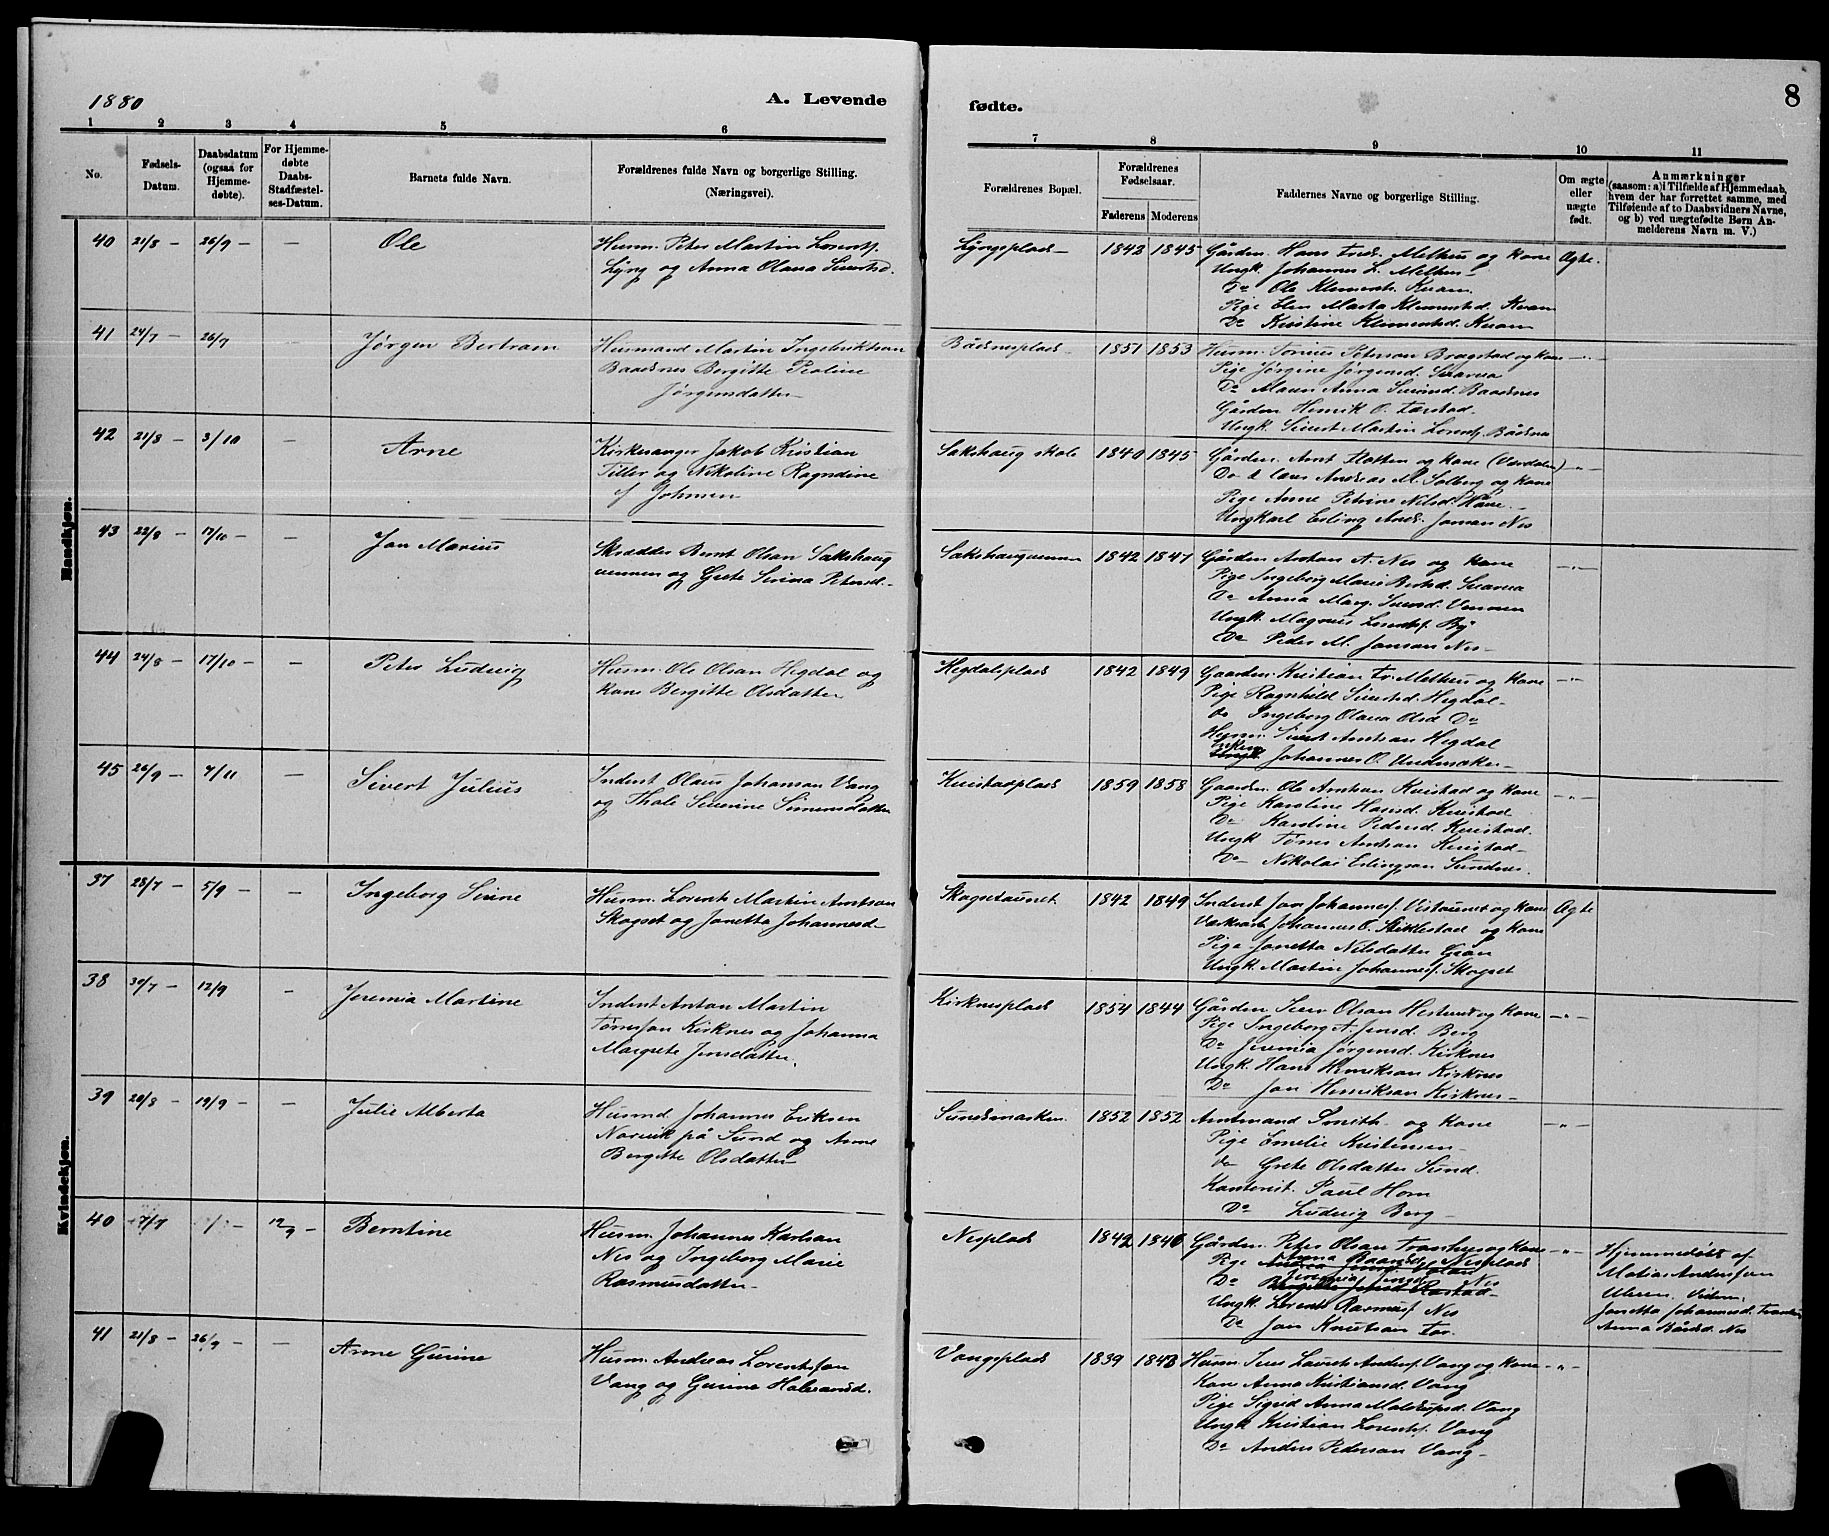 1880
A. Levende
fødte.
8
1 2 3 4 5 6 7 8 9 10 11
No.
Fødsels-Datum.
Daabsdatum (ogsaa for Hjemmedøbte).
For Hjemmedøbte Daabs-Stadfæstelses-Datum.
Barnets fulde Navn.
Forældrenes fulde Navn og borgerlige Stilling.
(Næringsvei).
Forældrenes Bopæl.
Forældrenes Fødselsaar.
Faderens Moderens
Faddernes Navne og borgerlige Stilling.
Om ægte eller uægte født.
Anmærkninger
(saasom: a) i Tilfælde af Hjemmedaab, hvem der har forrettet samme, med Tilføiende af to Daabsvidners Navne, og b) ved uægtefødte Børn Anmelderens Navn m. V.)
Mandkjøn.
40 21/8 – 26/9 – – Ole
Husm. Peter Martin Lorentsf.
Lyng og Anna Olava Sivertsd.
Lyngsplads – 1842 1845
Gården. Hans Fred. Melhus og Kone Ægte.
Ungk. Johannes L. Melhus –
Do Ole Klemets. Kvam
Pige Elen Marta Klemetsd. Kvam
Do Kristine Klemetsd. Kvam
41 24/7 – 26/7 – Jørgen Bertram
Husmand Martin Ingebriktsen
Baadsnes Bergitte Paoline
Jørgensdatter –
Bådsnesplads – 1851 1853
Husm. Tonius Peterson Bragstad og Kone –"–
Pige Jørgine Jørgensd.
Do Maren Anna Baadsnes
Gården Henrik O. Færstad.
Ungk. Sivert Martin Lorentsf. Bådsnes
42 21/8 – 3/10 – Arne
Kirkesanger Jakob Kristian
Tiller og Nikoline Ragndine
f Johnsen
Sakshaug skole 1840 1845
Gården. Arnt Flotten og Kone (Værdalen) –"–
Do & Andreas M. Solberg og Kone
Pige Anne Petrine Nilsd.
Ungkarl Erling Andr. Jonsen Nes
43 22/8 – 17/10 – – Jon Marius
Skrædder Bernt Olsen Sakshaug
vennen og Grete Serina Petersd. –
Sakshaugvennen 1842 1847
Gården Anton A. Nes og Kone –"–
Pige Ingeborg Marie
Do Anna Marg. Vennen
Ungk. Magnus Lorentsf. By
Do Peder M. Jonsen Nes –
44 24/8 – 17/10 – – Peter Ludvig
Husm. Ole Olsen Hegdal og
Kone Bergitte Olsdatter
Hegdalsplads 1842 1849
Gaarden. Kristian Fr. Melhus og Kone –"–
Pige Ragnhild Sivertsd. Hegdal –
do Ingeborg Olava Olsd Do
Husm. Sivert Arntsen Hegdal
Johannes O. –
45 26/9 – 7/11 – Sivert Julius
Inderst Olaus Johansen Vang
og Thale Severine Simonsdatter
Kvistadplads 1859 1858
Gaarden. Ole Arntsen Kvistad og Kone –"–
Pige Karoline Hansd. Kvistad
Do Karoline Pedersd. Kvistad.
Ungk Tørris Arntsen Kvistad –
Do – Nikolai Erlingsen Sundsnes.
Kvindekjøn.
37 28/7 – 5/9 – – Ingeborg Sirine
Husm. Lorents Martin Arntsen
Skogset og Janetta Johannesd –
Skogsetaunet 1842 1849
Inderst Jon Johannesf. Vistaunet og Kone Ægte
Johannes O. Stiklestad og Kone
Pige Janetta Nilsdatter Gran
Ungk. Martin Johannesf. Skogset
38 30/7 – 12/9 – Jeremia Martine
Inderst Anton Martin
Tørrisson Kirknes og Johanna
Margrete Jensdatter.
Kirknesplads 1854 1844
Gården Iver Olsen Hestvedt og Kone –"–
Pige Ingeborg A. Jensd. Berg
Do Jeremia Jørgensd. Kirknes
Ungk. Hans Henriksen Kirknes
Do Jon Henriksen Kirknes –
39 20/8 – 19/9 – – Julie Alberta
Husmd. Johannes Eriksen
Norvik på Sund og Anne
Bergitte Olsdatter –
Sundsmarken 1852 1852
Amtmand Smith – og Kone –"–
Pige Emelie Kristensen –
do Grete Olsdatter Sund.
Kontorist. Paul Horn
Do Ludvig Berg –
40 7/7 12/9 – Berntine
Husm. Johannes Karlsen
Nes og Ingeborg Marie
Rasmusdatter –
Nesplads 1842 1846
Gården. Peter Olsen Tranhus og Kone –"–
Pige Anna Baardsd. Nesplads
Do Jeremia Jensd. Nes
Ungk Lorents Rasmusf. Nes
Do Jon Knutsen Tor.
Hjemmedøbt af
Matias Andersson
Ulven. Vidner:
Janetta Johannesd. Tranhus
Anna Bårdsd. Nes
41 21/8 – 26/9 – – Anne Gurine
Husm. Andreas Lorentsson
Vang og Gurine Halvorsd.
Vangsplads 1839 1843
Husm. Jens Laurits Andersf. Vang og Kone –"–
Kone Anna Kristiansd. Vang
Pige Sigrid Anna Vang
Ungk Kristian Lorentsf. Vang
Do Anders Pederson Vang –